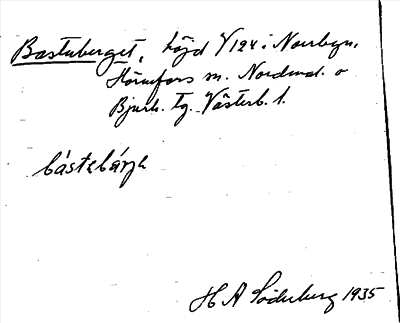 Bastuberget, höjd 1/124 i Norrbyn,
Hörnefors sn. Nordmal. o
Bjurh. tg. Västerb. l.
bástebárje
H A Söderberg 1935